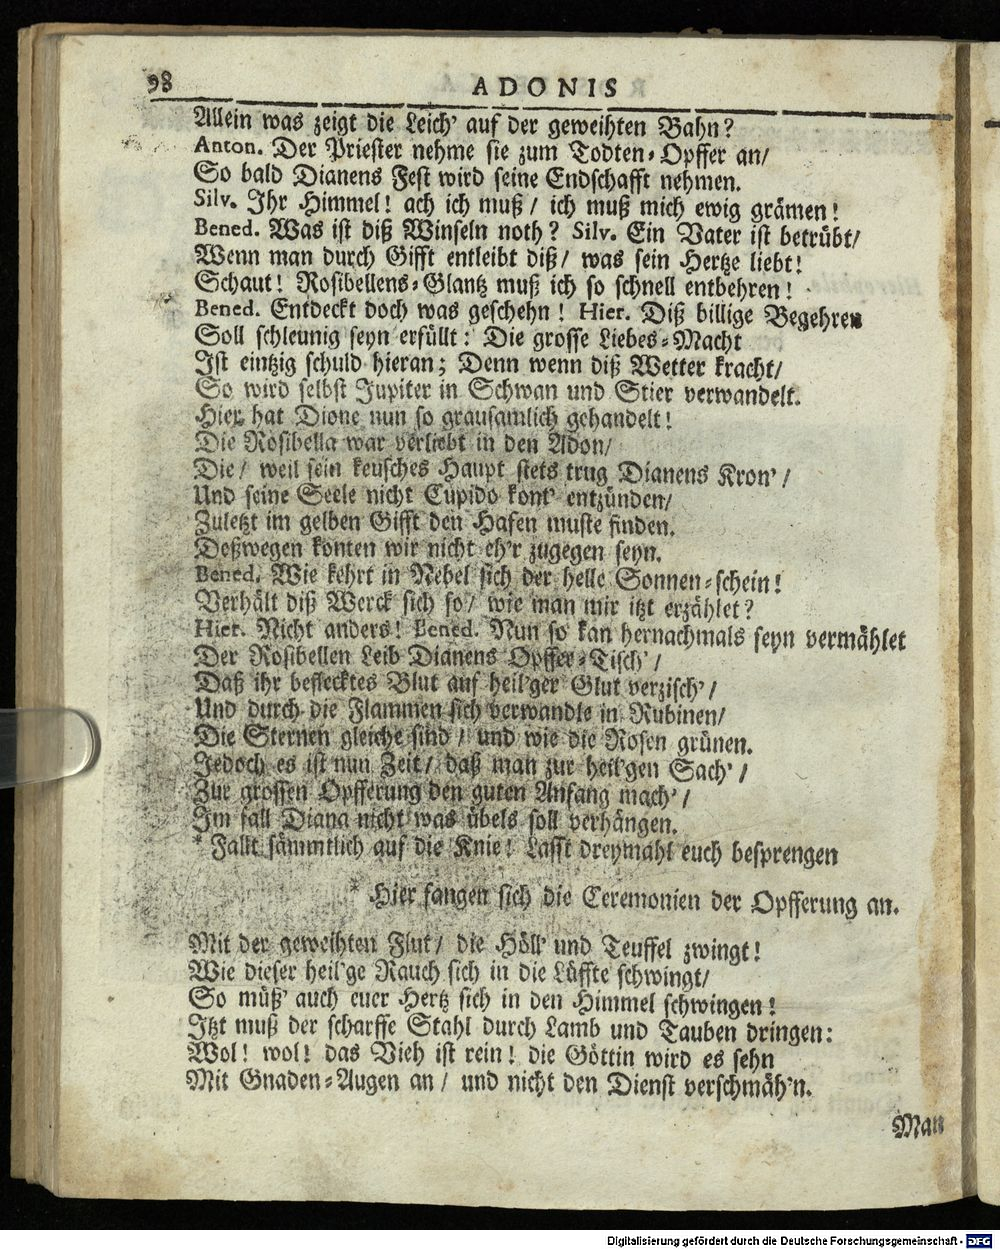 98 ADONIS
Allein was zeigt die Leich' auf der geweihten Bahn?
Anton. Der Priester nehme sie zum Todten-Opffer an/
So bald Dianens Fest wird seine Endschafft nehmen.
Silv. Ihr Himmel! ach ich muß/ ich muß mich ewig grämen!
Bened. Was ist diß Winseln noth? Silv. Ein Vater ist betrübt/
Wenn man durch Gifft entleibt diß/ was sein Hertze liebt!
Schaut! Rosibellens-Glantz muß ich so schnell entbehren!
Bened. Entdeckt doch was geschehn! Hier. Diß billige Begehren
Soll schleunig seyn erfüllt: Die grosse Liebes-Macht
Ist eintzig schuld hieran; Denn wenn diß Wetter kracht/
So wird selbst Jupiter in Schwan und Stier verwandelt.
Hier hat Dione nun so grausamlich gehandelt!
Die Rosibella war verliebt in den Adon/
Die/ weil sein keusches Haupt stets trug Dianens Kron'/
Und seine Seele nicht Cupido kont' entzünden/
Zuletzt im gelben Gifft den Hafen muste finden.
Deßwegen konten wir nicht eh'r zugegen seyn.
Bened. Wie kehrt in Nebel sich der helle Sonnen-schein!
Verhält diß Werck sich so/ wie man mir itzt erzählet?
Hier. Nicht anders! Bened. Nun so kan hernachmals seyn vermählet
Der Rosibellen Leib Dianens Opffer-Tisch'/
Daß ihr beflecktes Blut auf heil'ger Glut verzisch'/
Und durch die Flammen sich verwandle in Rubinen/
Die Sternen gleiche sind/ und wie die Rosen grünen.
Jedoch es ist nun Zeit/ daß man zur heil'gen Sach'/
Zur grossen Opfferung den guten Anfang mach'/
Im fall Diana nicht was übels soll verhängen.
* Fallt sämmtlich auf die Knie! Lasst dreymahl euch besprengen
* Hier fangen sich die Ceremonien der Opfferung an.
Mit der geweihten Flut/ die Höll' und Teuffel zwingt!
Wie dieser heil'ge Rauch sich in die Lüffte schwingt/
So müß' auch euer Hertz sich in den Himmel schwingen!
Itzt muß der scharffe Stahl durch Lamb und Tauben dringen:
Wol! wol! das Vieh ist rein! die Göttin wird es sehn
Mit Gnaden-Augen an/ und nicht den Dienst verschmäh'n.
Man
Digitalisierung gefördert durch die Deutsche Forschungsgemeinschaft - DFG